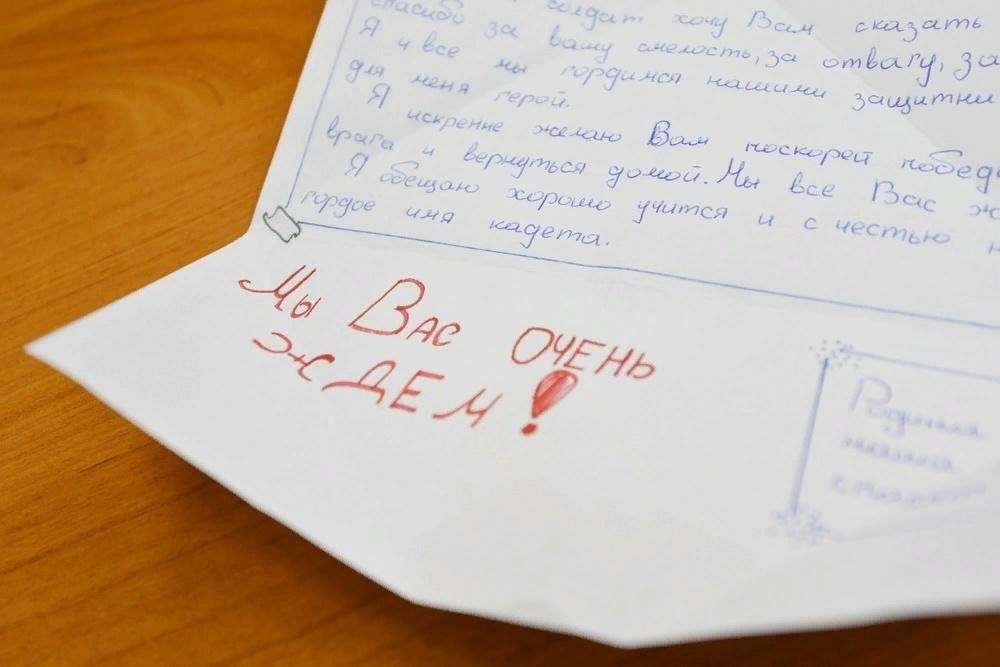 солдат хочу Вам сказать
спасибо за вашу смелость, за отвагу, за
Я и все мы гордимся нашими защитни
для меня герой.
Я искренне желаю Вам поскорей побед
врага и вернуться домой. Мы все Вас ж
Я обещаю хорошо учится и с честью н
гордое имя кадета.
Мы Вас очень
ждем!
Родина